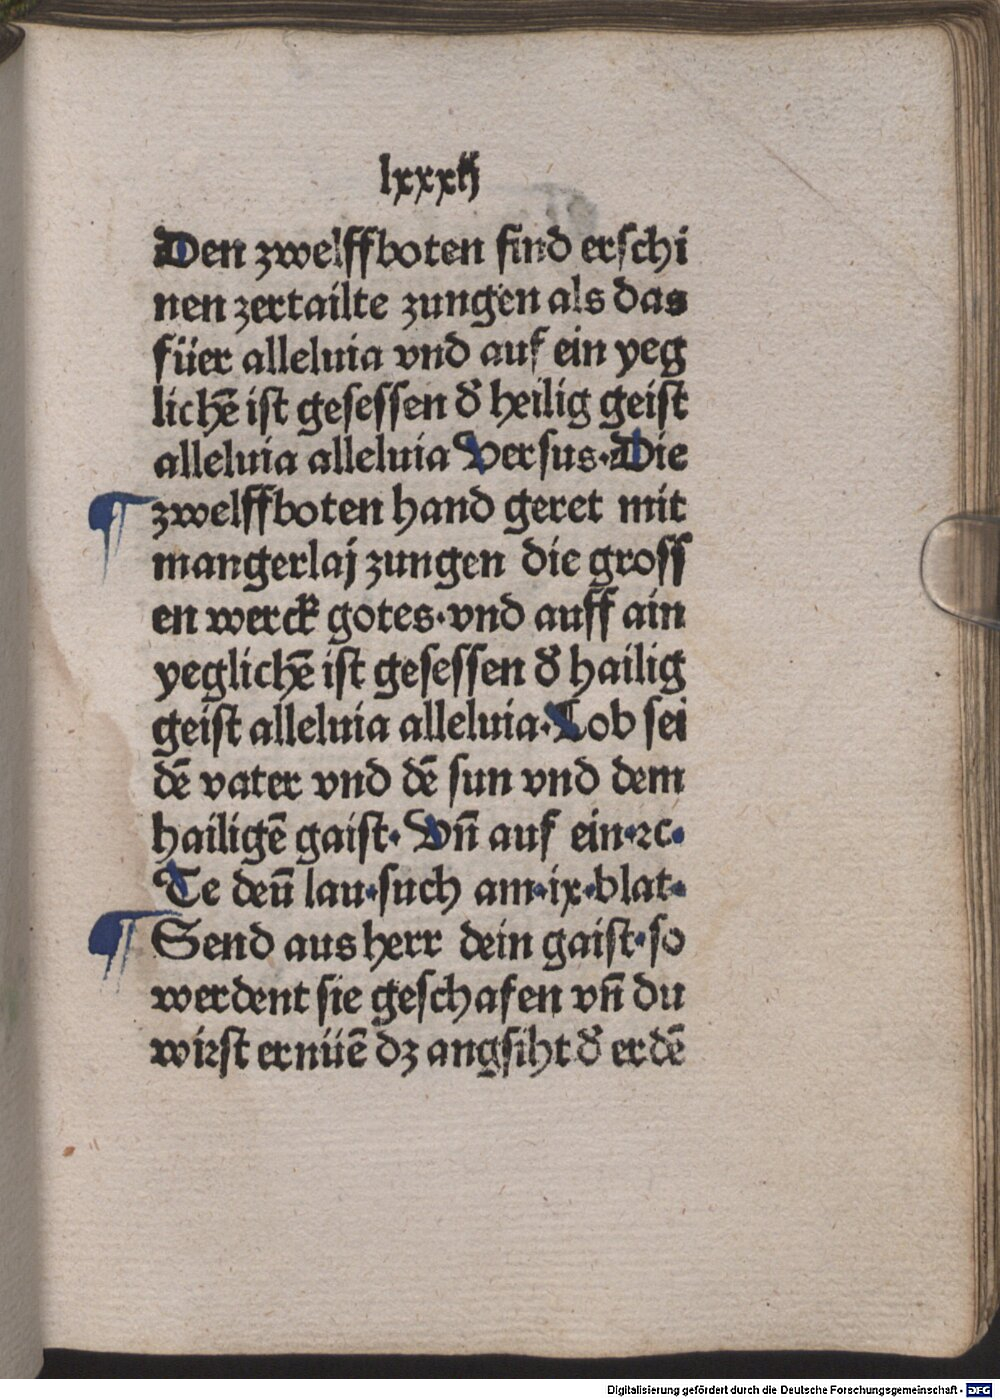 lxxxij
Den zwelffboten sind erschi
nen zertailte zungen als das
füer alleluia vnd auf ein yeg
lichē ist gesessen d̕ heilig geist
alleluia alleluia Versus·Die
zwelffboten hand geret mit
mangerlaj zungen die gross
en werck gotes·vnd auff ain
yeglichē ist gesessen d̕ hailig
geist alleluia alleluia·Lob sei
dē vater vnd dē sun vnd dem
hailigē gaist· Vn̄ auf ein·⁊c·
Te deū lau·such am·ix·blat·
Send aus herr dein gaist·so
werdent sie geschafen vn̄ du
wirst ernüē dz angsiht d̕ erdē
Digitalisierung gefördert durch die Deutsche Forschungsgemeinschaft - DFG